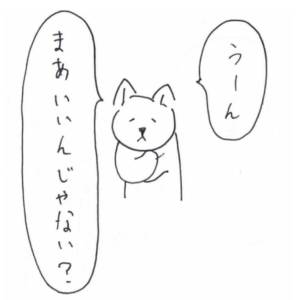 うーん
まあいいんじゃない?